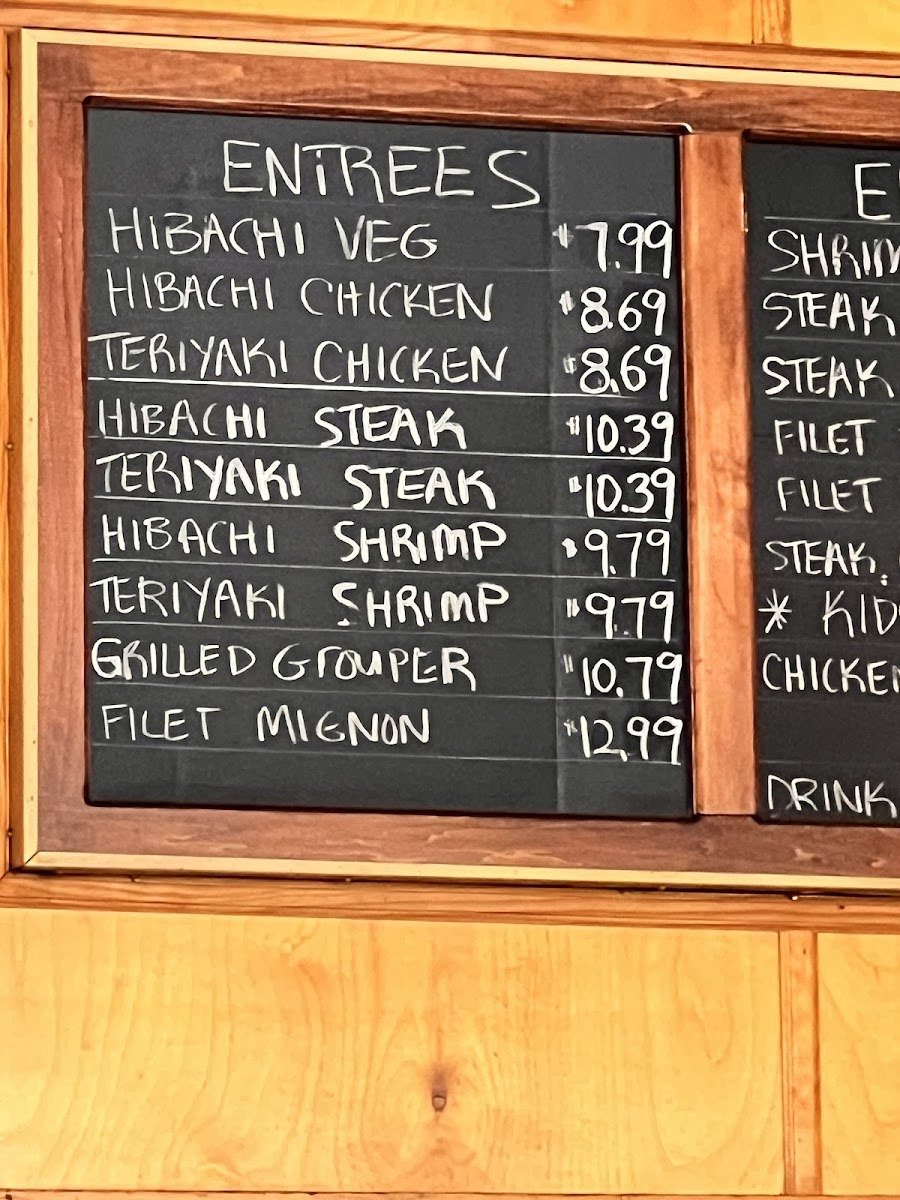 ENTREES
HIBACHI VEG $7.99
HIBACHI CHICKEN $8.69
TERIYAKI CHICKEN $8.69
HIBACHI STEAK $10.39
TERIYAKI STEAK $10.39
HIBACHI SHRIMP $9.79
TERIYAKI SHRIMP $9.79
GRILLED GROUPER $10.79
FILET MIGNON $12.99
STEAK
STEAK
FILET
FILET
STEAK
*
DRINK